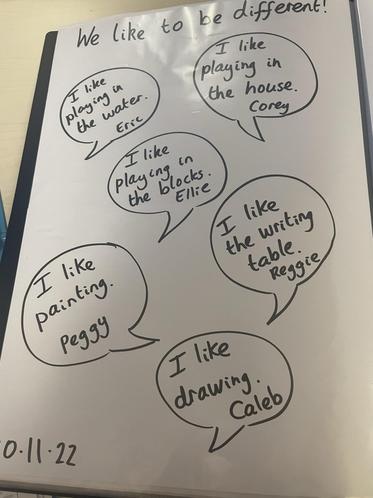 We like to be different!
I like
playing in
the water.
Eric
I like
playing in
the house.
Corey
I like
playing in
the blocks.
Ellie
I like
the writing
table.
Reggie
I like
painting.
Peggy
I like
drawing.
Caleb
0.11.22